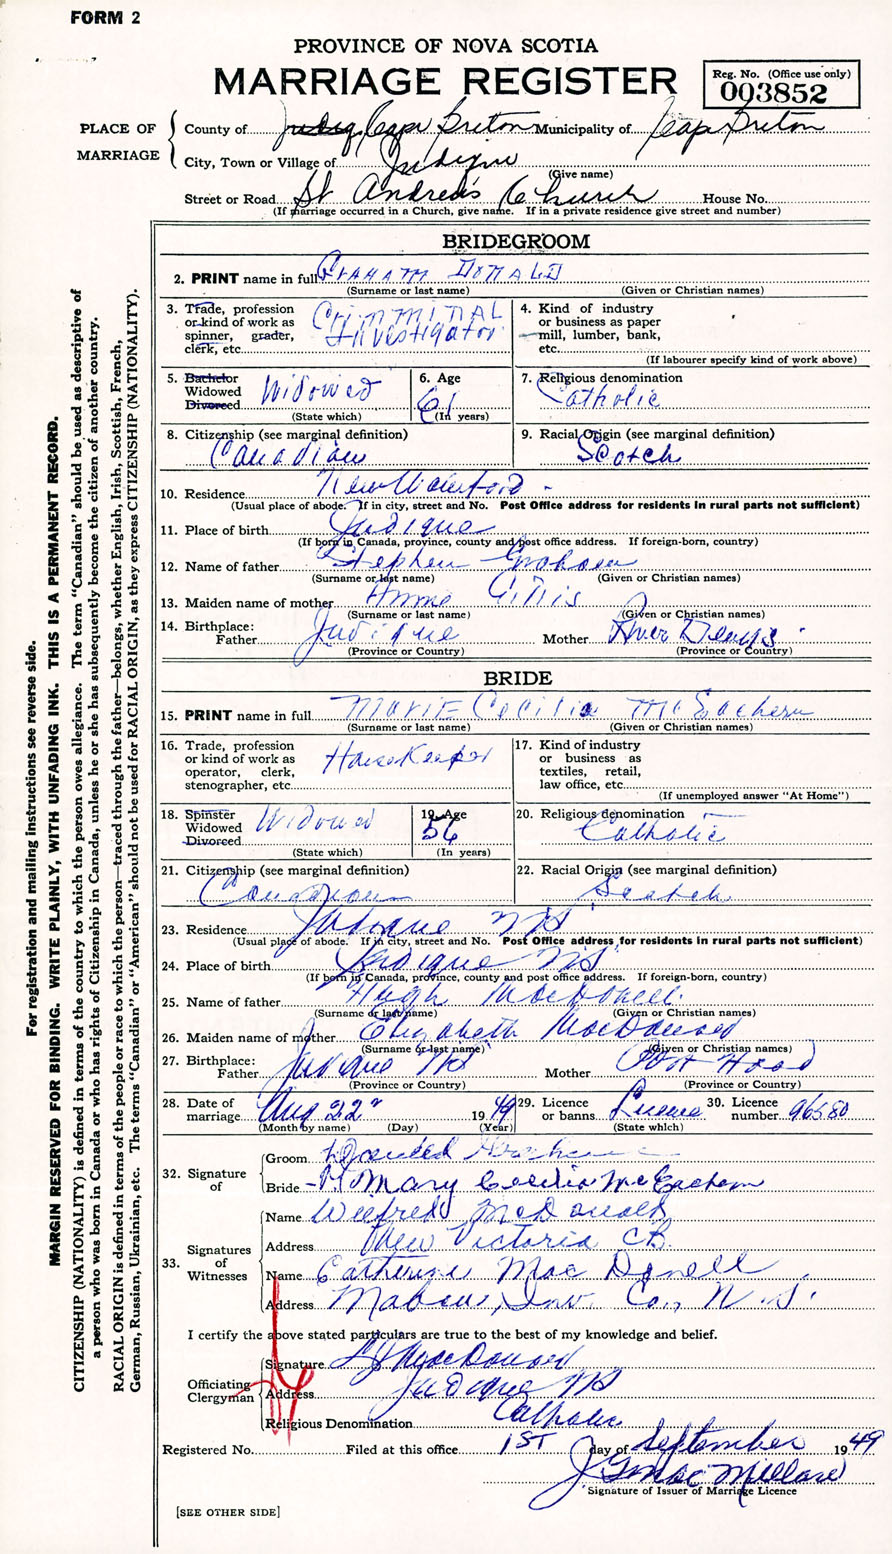 FORM 2
PROVINCE OF NOVA SCOTIA
MARRIAGE REGISTER
Reg. No. (Office use only)
003852
PLACE OF MARRIAGE
County of Judiq Cape Breton Municipality of Cape Breton
City, Town or Village of Judique
(Give name)
Street or Road St Andrea's Church House No.
(If marriage occurred in a Church, give name. If in a private residence give street and number)
BRIDEGROOM
2. PRINT name in full GRAHAM DONALD
(Surname or last name) (Given or Christian names)
3. Trade, profession or kind of work as spinner, grader, clerk, etc. CrimMINAL Investigator
4. Kind of industry or business as paper mill, lumber, bank, etc.
(If labourer specify kind of work above)
5. Bachelor Widowed Divorced Widowed
(State which)
6. Age 61
(In years)
7. Religious denomination Catholic
8. Citizenship (see marginal definition) Canadian
9. Racial Origin (see marginal definition) Scotch
10. Residence New Waterford -
(Usual place of abode. If in city, street and No. Post Office address for residents in rural parts not sufficient)
11. Place of birth Judique
(If born in Canada, province, county and post office address. If foreign-born, country)
12. Name of father Stephen Graham
(Surname or last name) (Given or Christian names)
13. Maiden name of mother Anne Gillis
(Surname or last name) (Given or Christian names)
14. Birthplace: Father Judique Mother River Denys
(Province or Country) (Province or Country)
BRIDE
15. PRINT name in full Marie Cecilia McEachern
(Surname or last name) (Given or Christian names)
16. Trade, profession or kind of work as operator, clerk, stenographer, etc. HouseKeeper
17. Kind of industry or business as textiles, retail, law office, etc.
(If unemployed answer "At Home")
18. Spinster Widowed Divorced Widowed
(State which)
19. Age 56
(In years)
20. Religious denomination Catholic
21. Citizenship (see marginal definition) Canadian
22. Racial Origin (see marginal definition) Scotch
23. Residence Judique NS
(Usual place of abode. If in city, street and No. Post Office address for residents in rural parts not sufficient)
24. Place of birth Judique NS
(If born in Canada, province, county and post office address. If foreign-born, country)
25. Name of father Hugh MacDonell
(Surname or last name) (Given or Christian names)
26. Maiden name of mother Elizabeth MacDonald
(Surname or last name) (Given or Christian names)
27. Birthplace: Father Judique NS Mother Port Hood
(Province or Country) (Province or Country)
28. Date of marriage Aug 22 1949
(Month by name) (Day) (Year)
29. Licence or banns License
(State which)
30. Licence number 96580
32. Signature of
Groom Donald Graham
Bride Mary Cecilia McEachern
33. Signatures of Witnesses
Name Wilfred McDonald
Address New Victoria CB.
Name Catherine MacDonell
Address Mabou, Inv. Co., N.S.
I certify the above stated particulars are true to the best of my knowledge and belief.
Officiating Clergyman
Signature MacDonald
Address Judique NS
Religious Denomination Catholic
Registered No. Filed at this office 1ST day of September 1949
J MacMillan
Signature of Issuer of Marriage Licence
[SEE OTHER SIDE]
For registration and mailing instructions see reverse side.
MARGIN RESERVED FOR BINDING. WRITE PLAINLY, WITH UNFADING INK. THIS IS A PERMANENT RECORD.
CITIZENSHIP (NATIONALITY) is defined in terms of the country to which the person owes allegiance. The term "Canadian" should be used as descriptive of
a person who was born in Canada or who has rights of Citizenship in Canada, unless he or she has subsequently become the citizen of another country.
RACIAL ORIGIN is defined in terms of the people or race to which the person—traced through the father—belongs, whether English, Irish, Scottish, French,
German, Russian, Ukrainian, etc. The terms "Canadian" or "American" should not be used for RACIAL ORIGIN, as they express CITIZENSHIP (NATIONALITY).